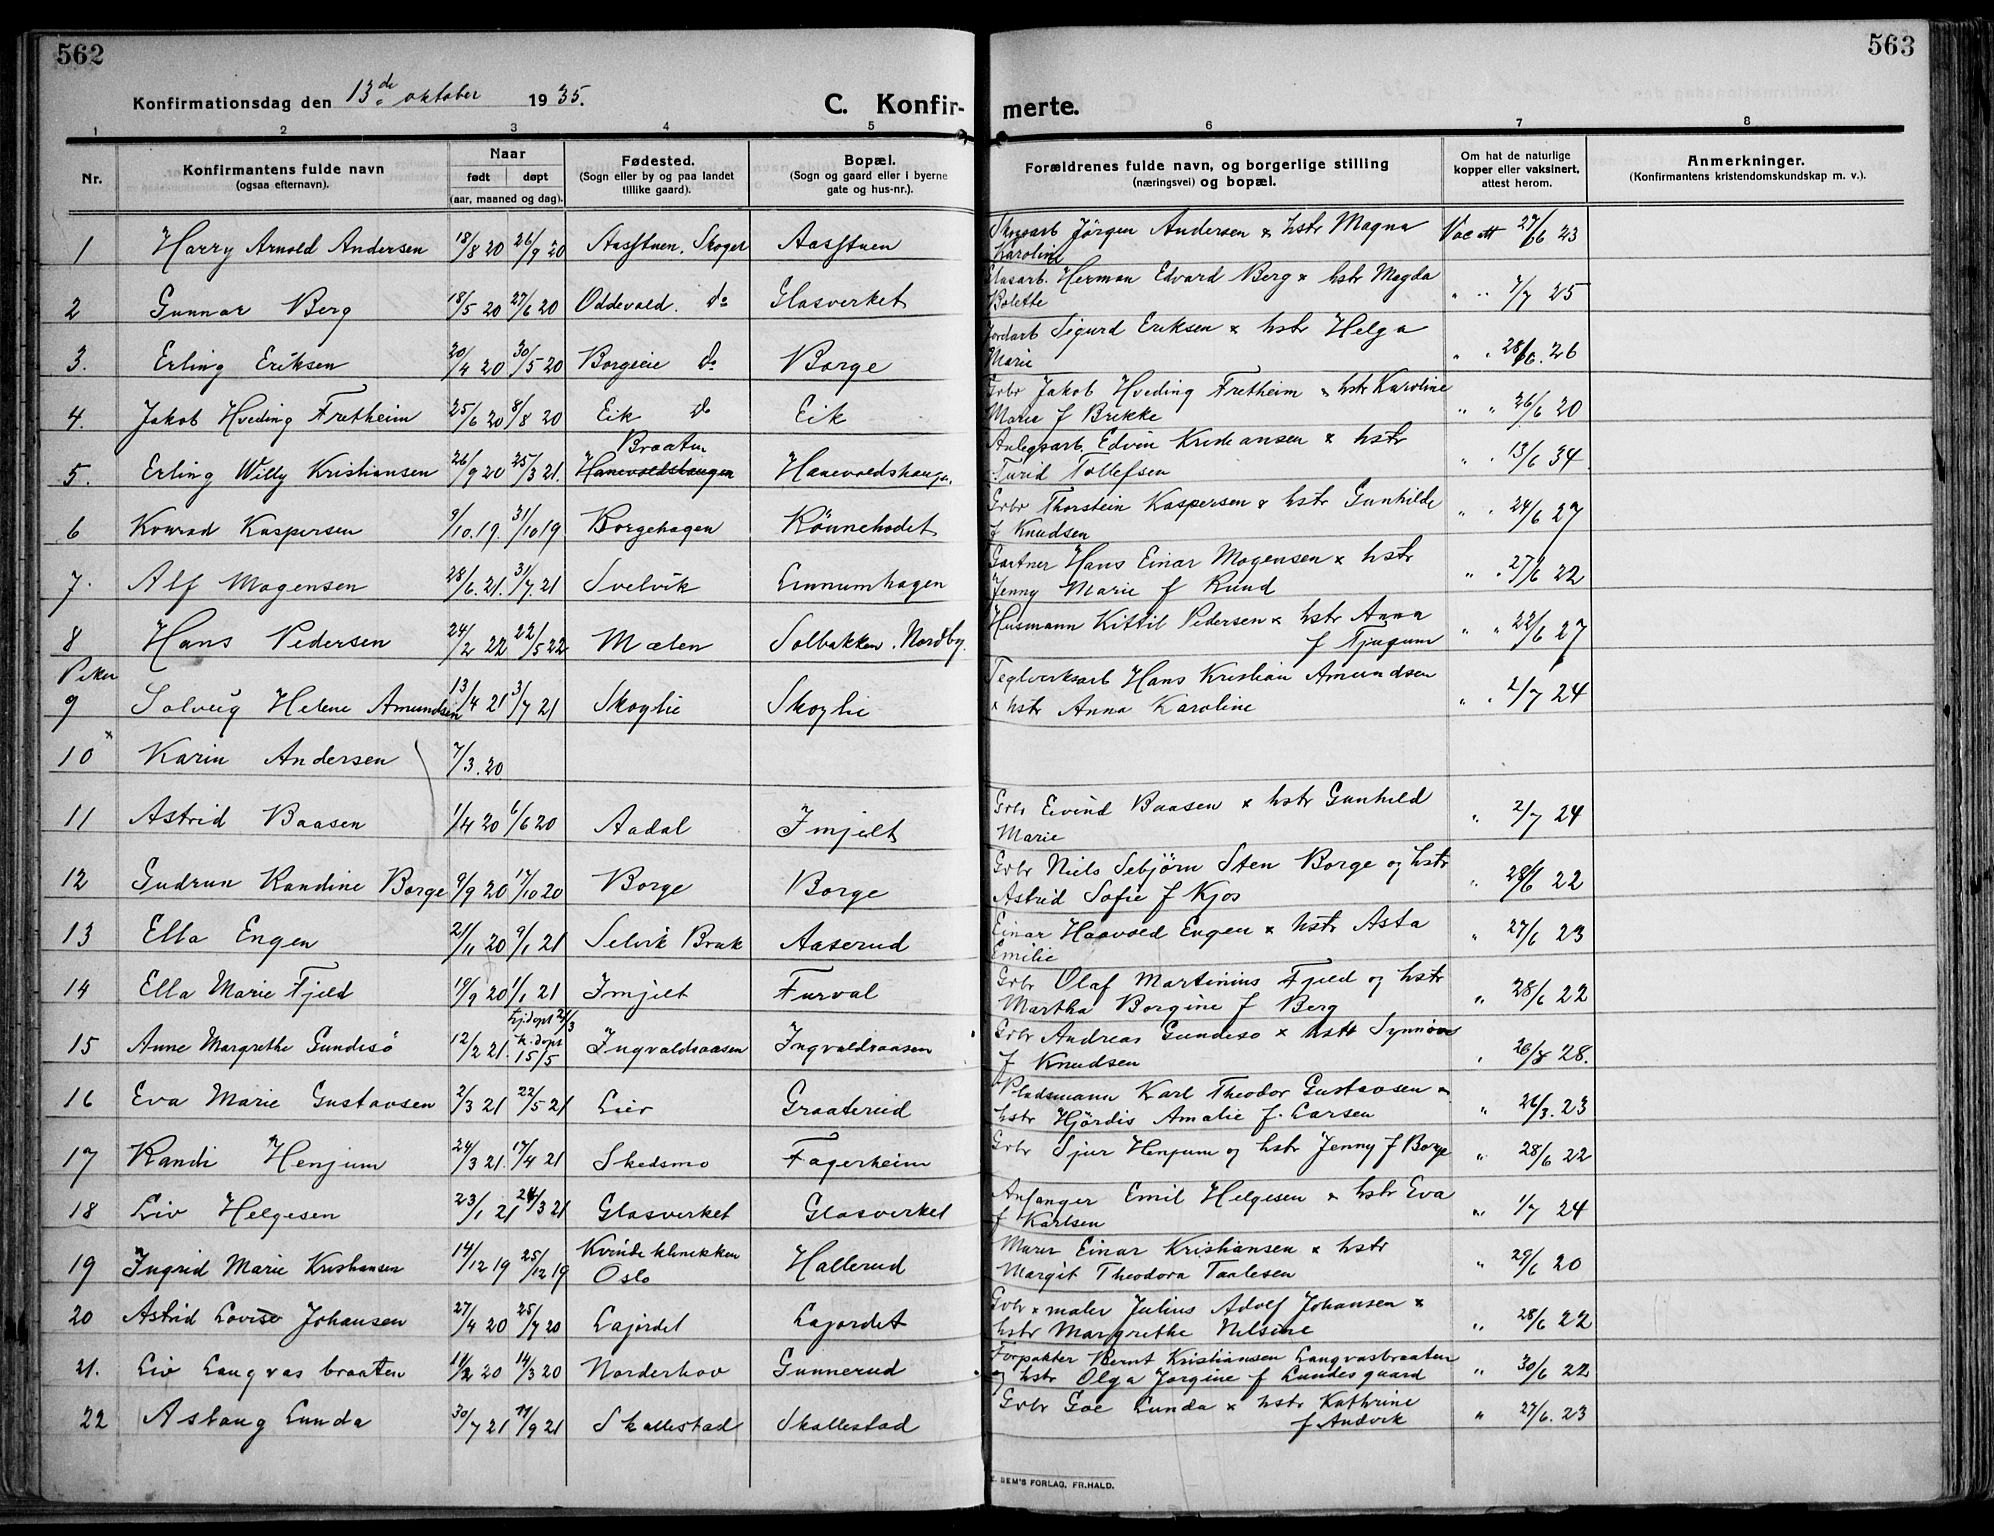 562
563
Konfirmationsdag den 13de oktober 1935.
C. Konfir-merte.
1 2 3 4 5 6 7 8
Nr.
Konfirmantens fulde navn (ogsaa efternavn).
Naar født døpt (aar, maaned og dag).
Fødested. (Sogn eller by og paa landet tillike gaard).
Bopæl. (Sogn og gaard eller i byerne gate og hus-nr.).
Forældrenes fulde navn, og borgerlige stilling (næringsvei) og bopæl.
Om hat de naturlige kopper eller vaksinert, attest herom.
Anmerkninger. (Konfirmantens kristendomskundskap m. v.).
1 Harry Arnold Andersen 18/8 20 26/9 20 Aasstuen. Skoger Aasstuen Skogsarb Jörgen Andersen & hstr Magna
Karoline Vac att 27/6 23
2 Gunnar Berg 18/5 20 27/6 20 Oddevald. do Glasverket Glasarb. Herman Edvard Berg & hstr Magda
Bolette " " 7/7 25
3. Erling Eriksen 20/4 20 30/5 20 Borgeeie do Borge Jordarb Sigurd Eriksen & hstr Helga
Marie " " 28/6. 26
4. Jakob Hveding Fretheim 25/6 20 8/8 20 Eik do Eik Grbr Jakob Hveding Fretheim & hstr Karoline
Marie f Brekke " " 26/6 20
5. Erling Willy Kristiansen 26/9 20 25/3 21. Braaten Hanevoldshaugen Hanevoldshaugn. Anlegsarb. Edvin Kristiansen & hstr
Turid Tollefsen " . 13/6 34
6 Konrad Kaspersen 9/10.19. 31/10 19 Borgehagen Rönnehodet Grbr Thorstein Kaspersen & hstr Gunhilde
f Knudsen " . 24/6 27
7. Alf Magensen 28/6.21. 31/7.21 Svelvik Linnumhagen Gartner Hans Einar Mogensen & hstr
Jenny Marie f Rund " . 27/6 22
8 Hans Pedersen 24/2 22 22/5 22 Mælen Solbakken. Nordby. Husmann Kittil Pedersen & hstr Anna
f Tjugum " " 22/6 27
Piker
9 Solveig Helene Amundsen 13/4 21 3/7 21 Skoglie Skoglie Teglverksarb Hans Kristian Amundsen
& hstr Anna Karoline " . 2/7 24
10 x Karin Andersen 7/3.20
11 Astrid Baasen 1/4 20 6/6 20 Aadal Imjelt Grbr Eivind Baasen & hstr Gunhild
Marie " 2/7 24
12 Gudrun Randine Borge 9/9 20 17/10 20 Borge Borge Grbr Niels Sebjörn Sten Borge og hstr
Astrid Sofie f Kjos " 28/6 22
13 Ella Engen 21/11 20 9/1 21 Selvik Bruk Aaserud Einar Haavold Engen & hstr Asta
Emilie " 27/6 23
14 Ella Marie Fjeld 19/9 20 1/1 21 Imjelt Furval Grbr Olaf Martinius Fjeld og hstr
Martha Borgine f Berg " 28/6 22
15 Anne Margrethe Gundesö 12/2 21. hj.döpt 21/3 k.döpt 15/5 Ingvaldsaasen Ingvaldsaasen Grbr Andreas Gundesö & hstr Synnöve
f Knudsen " 26/8 28.
16 Eva Marie Gustavsen 2/3 21 22/5 21 Lier Graatereid Pladsmann Karl Theodor Gustavsen &
hstr Hjördis Amalie f. Larsen " 26/3. 23
17 Randi Henjum 24/3 21. 17/4 21 Skedsmo Fagerheim Grbr Sjur Henjum og hstr Jenny f Borge " 28/6 22
18 Liv Helgesen 23/1 21 28/3 21 Glasverket Glasverket Anfanger Emil Helgesen & hstr Eva
f Karlsen " 1/7 24
19 Ingrid Marie Kristiansen 14/12 19 25/12 19 Kvindeklinikken
Oslo Hallerud Murer Einar Kristiansen & hstr
Margit Theodora Taalesen " 29/6 20
20 Astrid Lovise Johansen 27/4 20 25/7 20 Lajordet Lajordet Grbr & maler Julius Adolf Johansen &
hstr Margrethe Nilsine " 28/6 22
21. Liv Langvasbraaten 14/2 20 14/3 20 Norderhov Gunnerud Forpakter Bernt Kristiansen Langvasbraaten
og hstr Olga Jorgine f Lundesgaard " 30/6 22
22 Aslaug Lunda 30/7 21 11/9 21 Skallestad Skallestad Grbr Goe Lunda & hstr Kathrine
f Andvik " 27/6. 23
DEM'S FORLAG, FR.HALD.